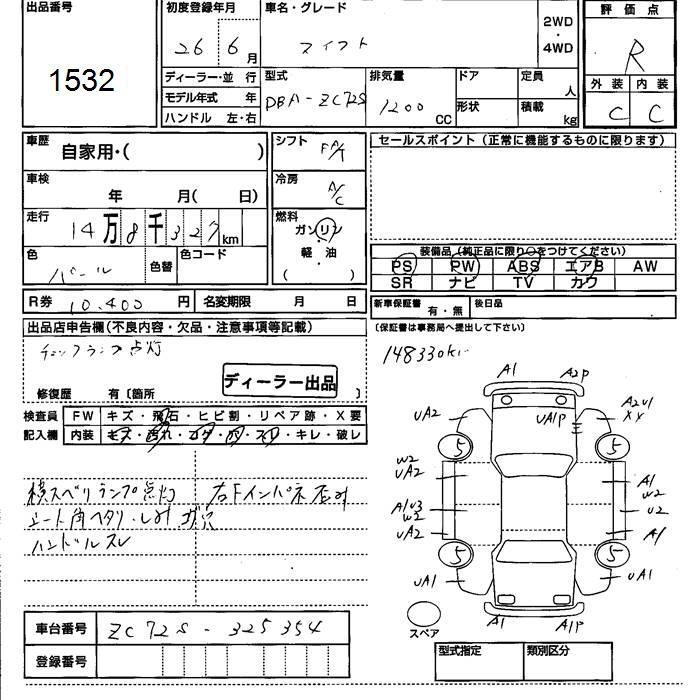 出品番号
1532
初度登録年月
26 6月
車名・グレード
スイフト
2WD・4WD
評価点
R
外装 内装
C C
ディーラー・並行
モデル年式 年
ハンドル 左・右
型式
DBA-ZC72S
排気量
1200 CC
ドア
形状
定員 人
積載 kg
車歴 自家用・( )
シフト FAT
車検 年 月( 日)
冷房 A/C
走行 14万8千327km
燃料 ガソリン
軽・油
( )
色 パール
色替
色コード
R券 10,400 円
名変期限 月 日
セールスポイント(正常に機能するものに限ります)
装備品(純正品に限り○をつけてください)
PS PW ABS エアB AW
SR ナビ TV カワ
新車保証書 有・無
後日品
(保証書は事務局へ提出して下さい)
出品店申告欄(不良内容・欠品・注意事項等記載)
チェックランプ点灯
修復歴 有〔箇所 〕
ディーラー出品
検査員記入欄
FW キズ・飛石・ヒビ割・リペア跡・X要
内装 キズ・汚れ・コゲ・穴・スレ・キレ・破レ
横スベリランプ点灯 右Fインパネ歪み
シート角ヘタリ・しみ・コゲ穴
ハンドルスレ
148330km
A1 A2P
UA2 UA1P A2U1
XX
5 5
W2
UA2 A1
W2
A1U3
W2 U2
UA2 A1
5 5
UA1 UA1
A1 A1P
スペア
車台番号 ZC72S-325354
登録番号
型式指定 類別区分